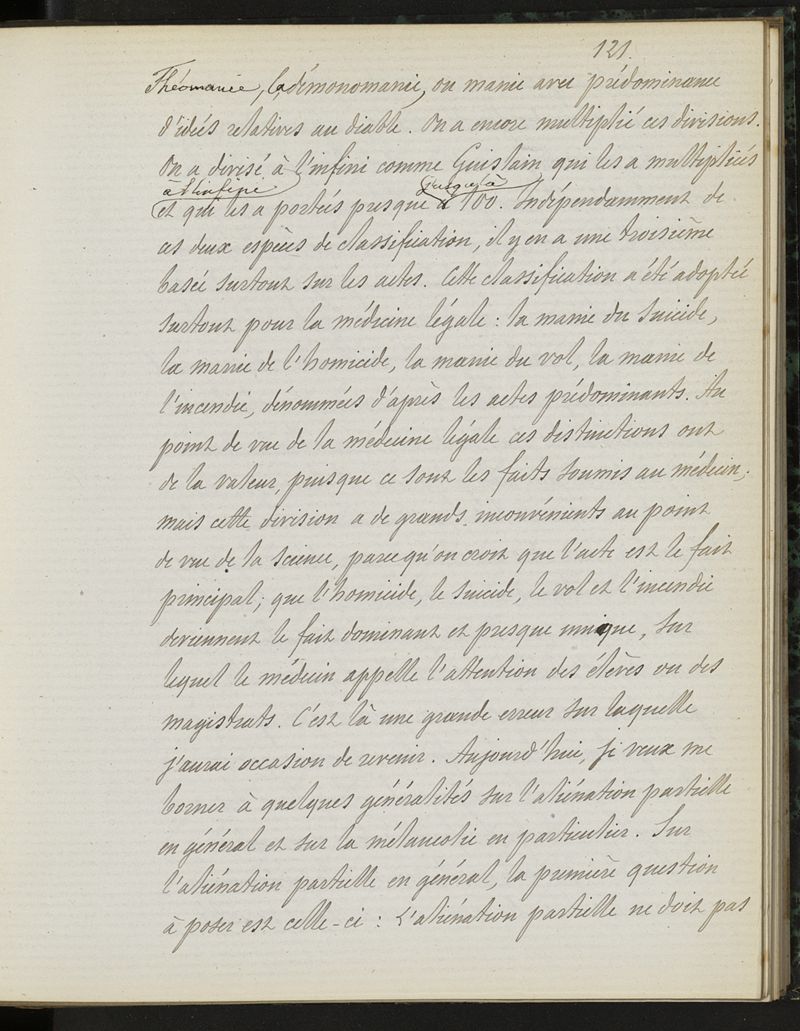 121.
Théomanie, la démonomanie, ou manie avec prédominance
d'idées relatives au diable. On a encore multiplié ces divisions.
On a divisé à l'infini comme Guislain qui les a multipliées
à l'infini jusqu'à
et qui les a portées presque à 100. Indépendamment de
ces deux espèces de classification, il y en a une troisième
basée surtout sur les actes. Cette classification a été adoptée
surtout pour la médecine légale : la manie du suicide,
la manie de l'homicide, la manie du vol, la manie de
l'incendie, dénommées d'après les actes prédominants. Au
point de vue de la médecine légale ces distinctions ont
de la valeur, puisque ce sont les faits soumis au médecin ;
mais cette division a de grands inconvénients au point
de vue de la science, parce qu'on croit que l'acte est le fait
principal ; que l'homicide, le suicide, le vol et l'incendie
deviennent le fait dominant et presque unique, sur
lequel le médecin appelle l'attention des élèves ou des
magistrats. C'est là une grande erreur sur laquelle
j'aurai occasion de revenir. Aujourd'hui, je veux me
borner à quelques généralités sur l'aliénation partielle
en général et sur la mélancolie en particulier. Sur
l'aliénation partielle en général, la première question
à poser est celle-ci : L'aliénation partielle ne doit pas